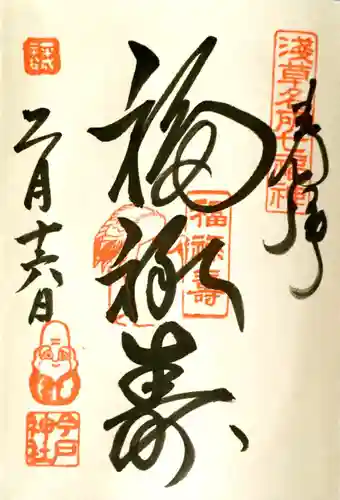 奉拝
浅草名所七福神
福禄寿
福禄寿
二月十六日
今戸
神社